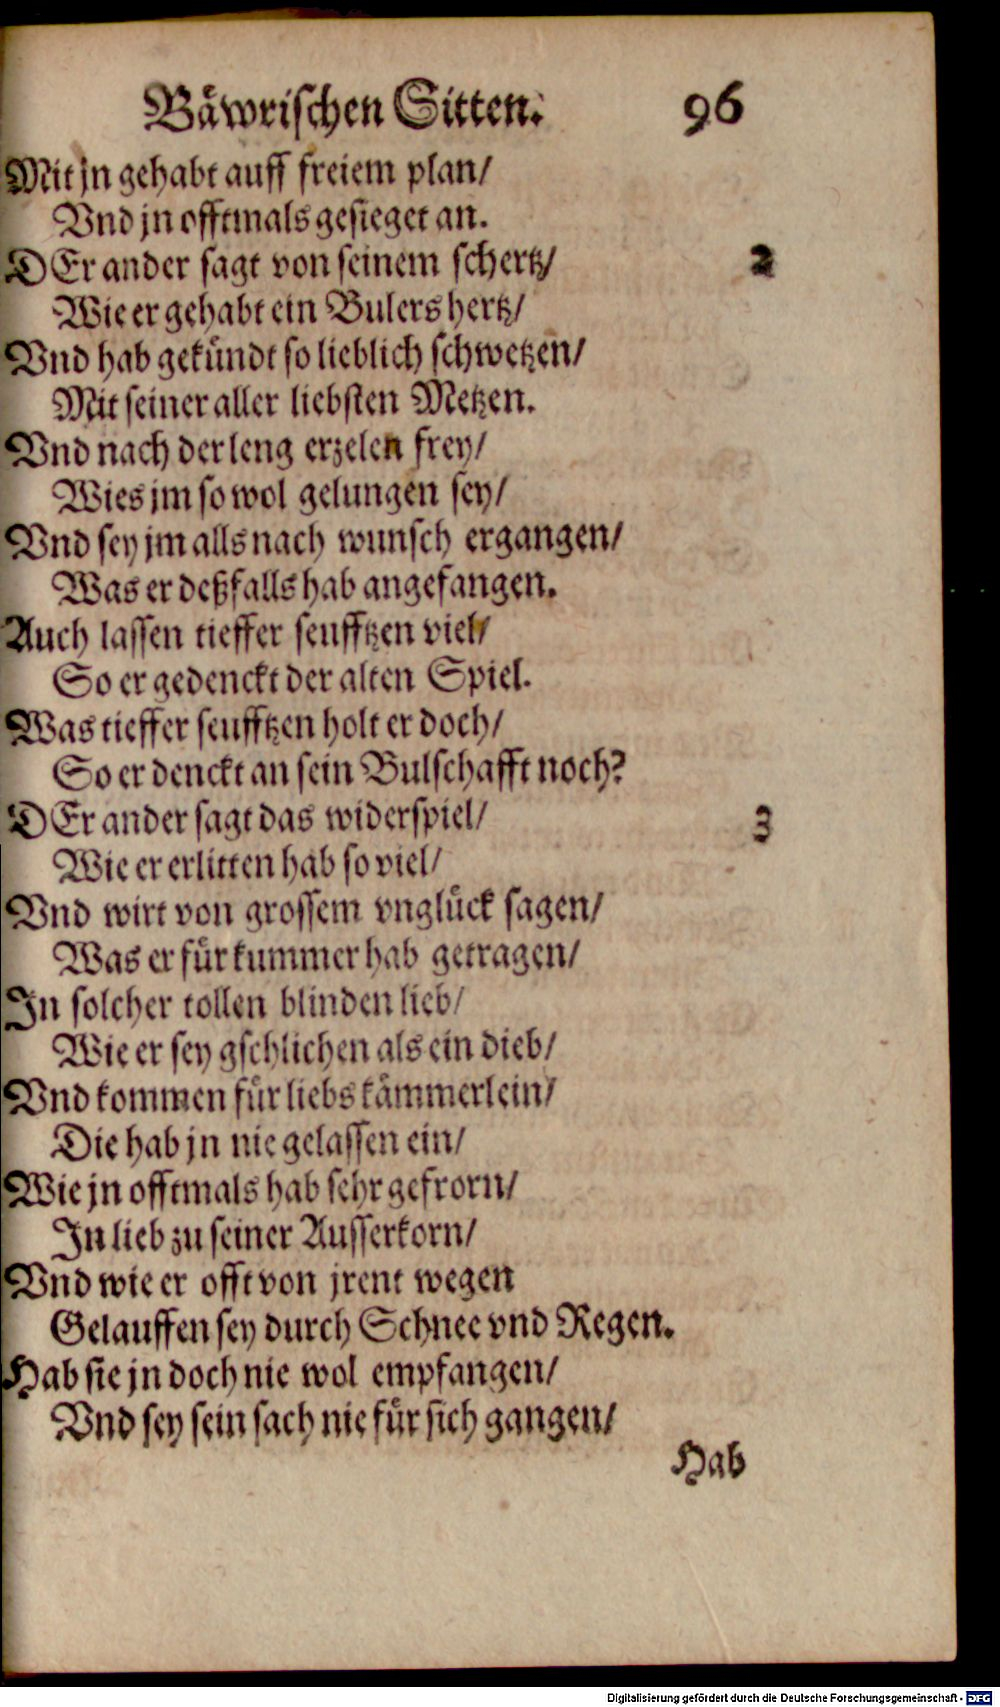 Bäwrischen Sitten. 96
Mit jn gehabt auff freiem plan/
Vnd jn offtmals gesieget an.
DEr ander sagt von seinem schertz/ 2
Wie er gehabt ein Bulers hertz/
Vnd hab gekündt so lieblich schwetzen/
Mit seiner aller liebsten Metzen.
Vnd nach der leng erzelen frey/
Wies jm so wol gelungen sey/
Vnd sey jm alls nach wunsch ergangen/
Was er deßfalls hab angefangen.
Auch lassen tieffer seufftzen viel/
So er gedenckt der alten Spiel.
Was tieffer seufftzen holt er doch/
So er denckt an sein Bulschafft noch?
DEr ander sagt das widerspiel/ 3
Wie er erlitten hab so viel/
Vnd wirt von grossem vnglück sagen/
Was er für kummer hab getragen/
In solcher tollen blinden lieb/
Wie er sey gschlichen als ein dieb/
Vnd kommen für liebs kämmerlein/
Die hab jn nie gelassen ein/
Wie jn offtmals hab sehr gefrorn/
In lieb zu seiner Ausserkorn/
Vnd wie er offt von jrent wegen
Gelauffen sey durch Schnee vnd Regen.
Hab sie jn doch nie wol empfangen/
Vnd sey sein sach nie für sich gangen/
Hab
Digitalisierung gefördert durch die Deutsche Forschungsgemeinschaft - DFG